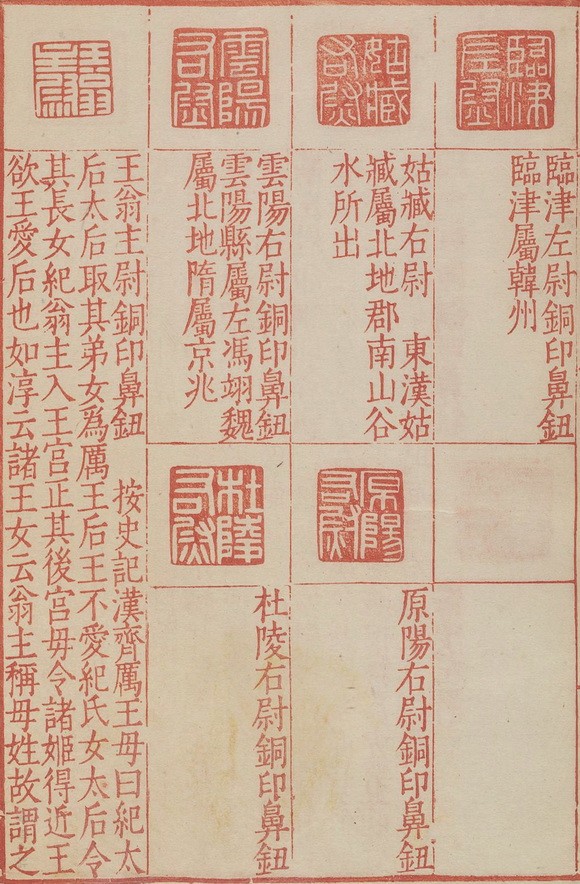 臨津
左尉
臨津左尉銅印鼻鈕
臨津屬韓州
姑臧
右尉
姑臧右尉　東漢姑
臧屬北地郡南山谷
水所出
原陽
右尉
原陽右尉銅印鼻鈕
雲陽
右尉
雲陽右尉銅印鼻鈕
雲陽縣屬左馮翊魏
屬北地隋屬京兆
杜陵
右尉
杜陵右尉銅印鼻鈕
王翁
主尉
王翁主尉銅印鼻鈕　按史記漢齊厲王毋曰紀太
后太后取其弟女爲厲王后王不愛紀氏女太后令
其長女紀翁主入王宮正其後宮毋令諸姬得近王
欲王愛后也如淳云諸王女云翁主稱毋姓故謂之